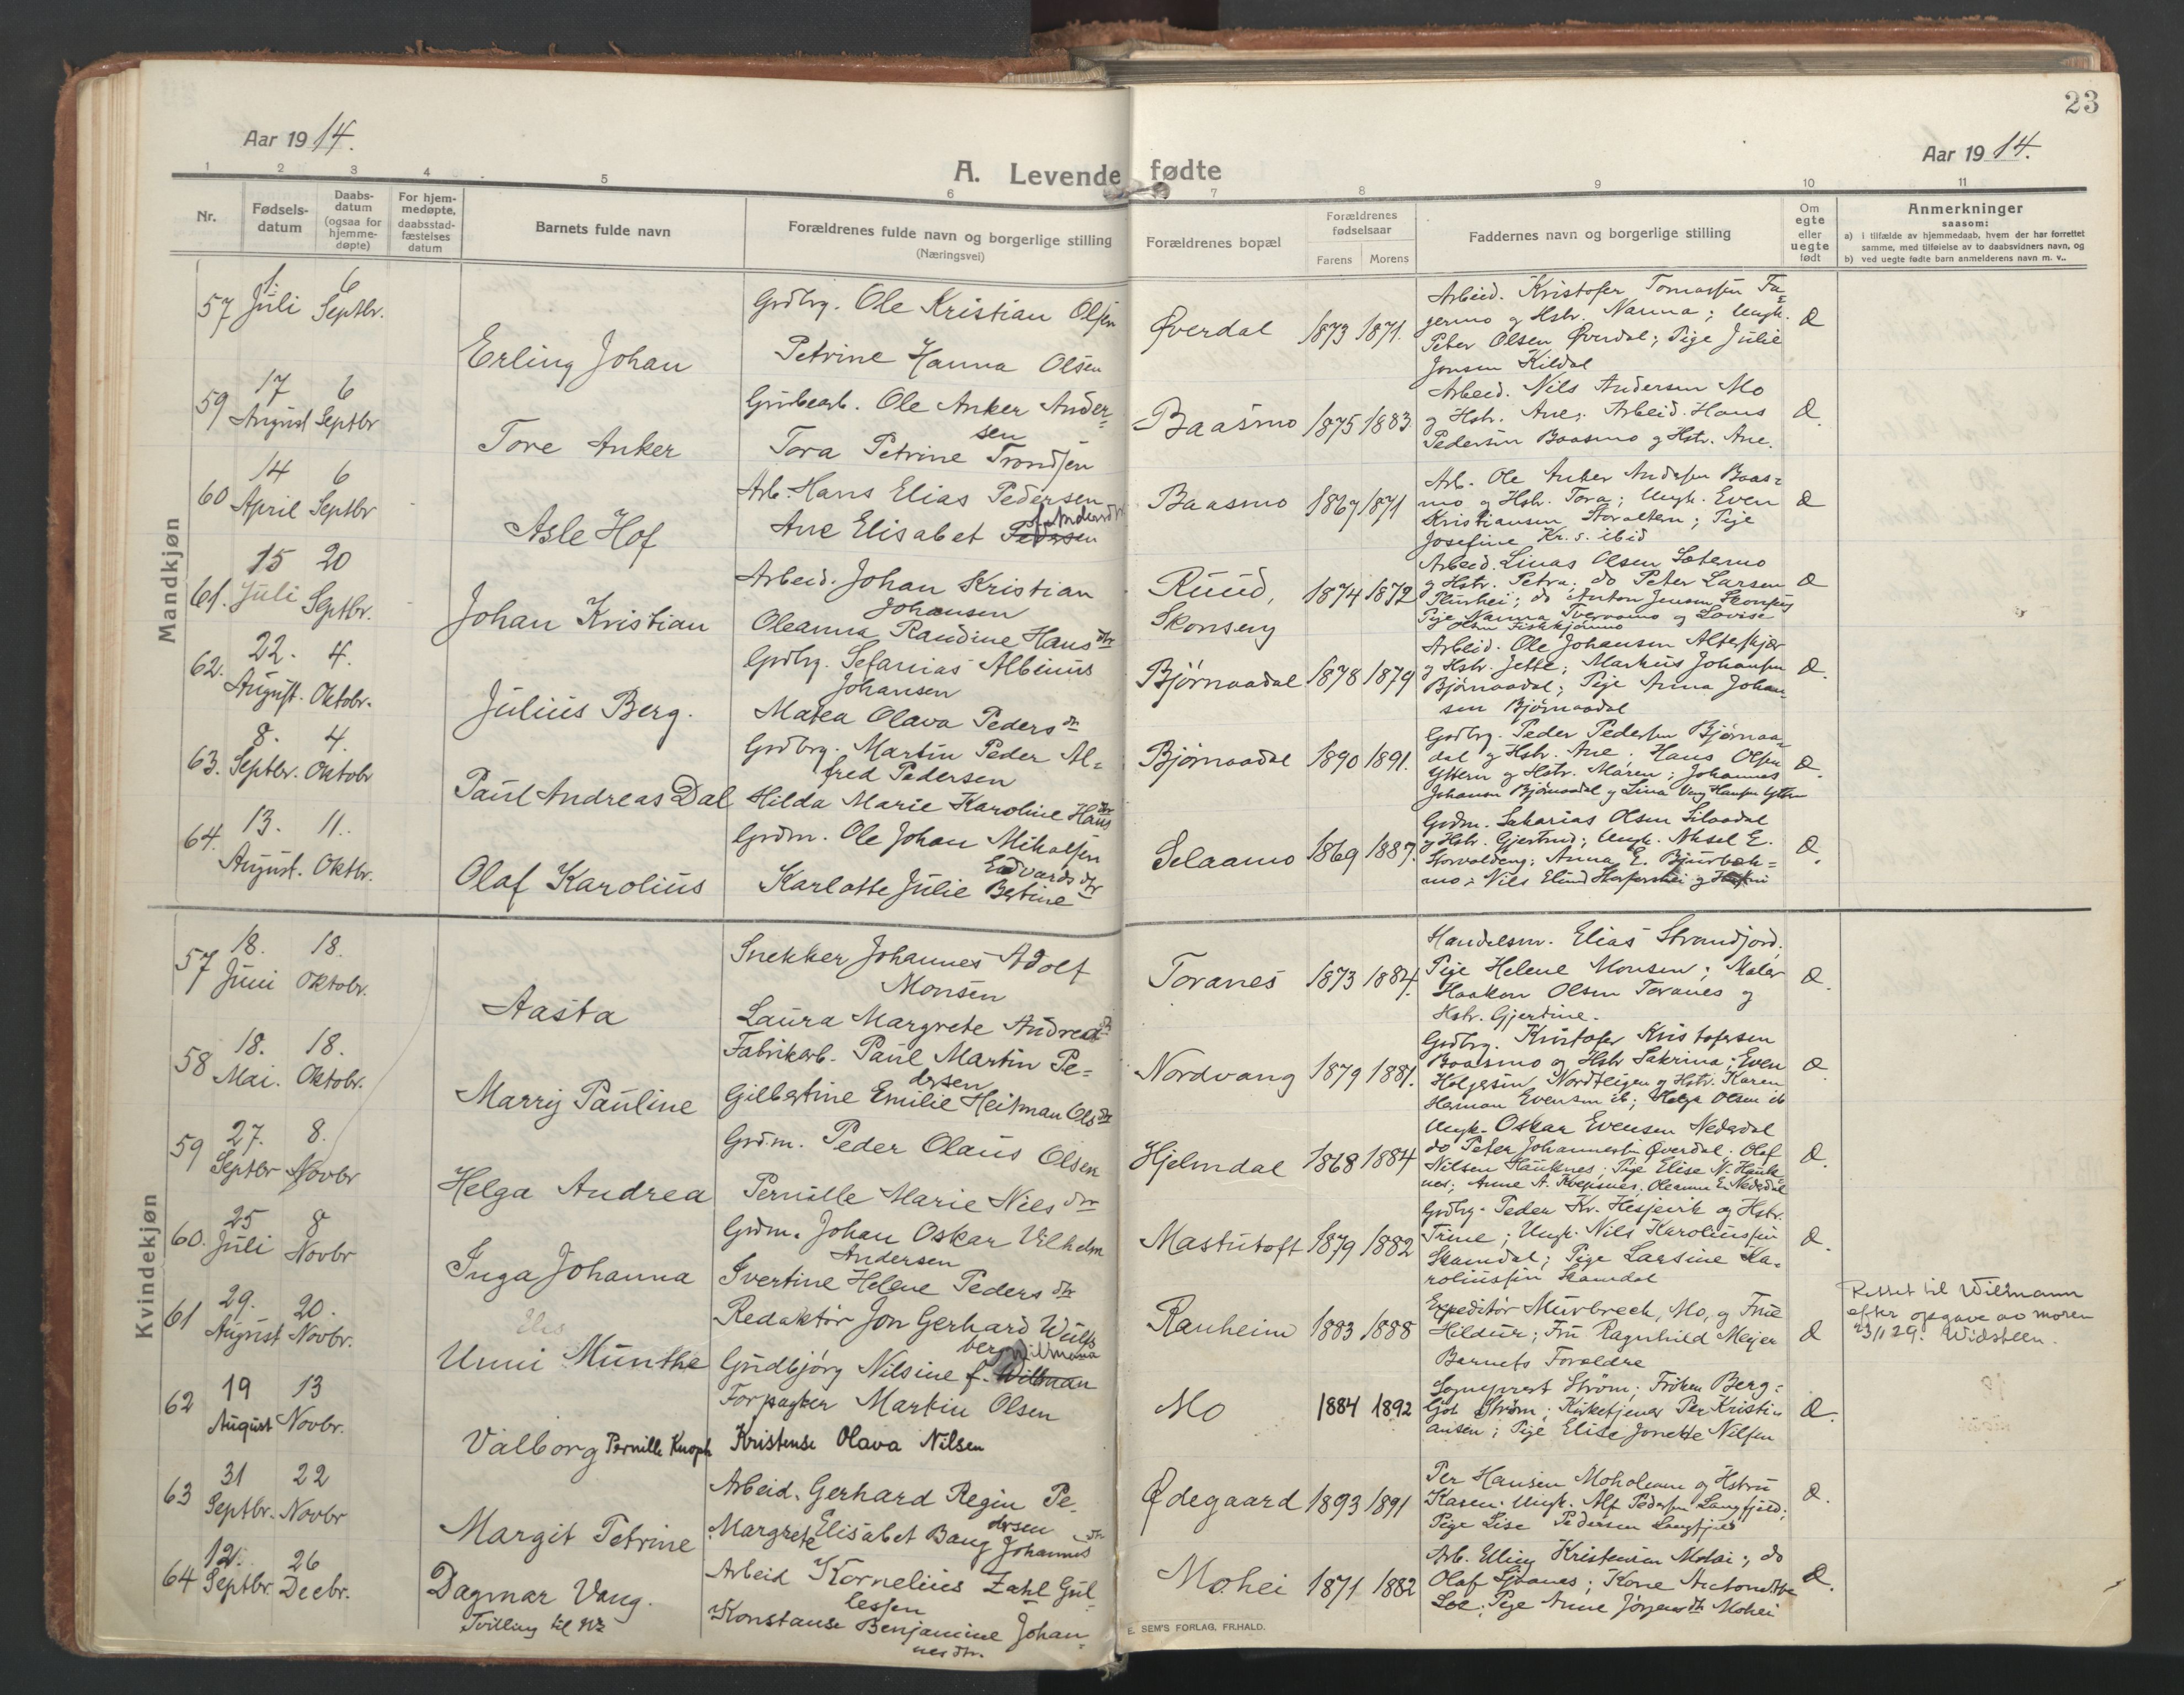 23
Aar 1914.
A. Levende fødte
Aar 1914.
1 2 3 4 5 6 7 8 9 10 11
Nr.
Fødsels-
datum
Daabs-
datum
(ogsaa for
hjemme-
døpte)
For hjem-
medøpte,
daabsstad-
fæstelses
datum
Barnets fulde navn
Forældrenes fulde navn og borgerlige stilling
(Næringsvei)
Forældrenes bopæl
Forældrenes
fødselsaar
Farens Morens
Faddernes navn og borgerlige stilling
Om
egte
eller
uegte
født
Anmerkninger
saasom:
a) i tilfælde av hjemmedaab, hvem der har forrettet
samme, med tilføielse av to daabsvidners navn, og
b) ved uegte fødte barn anmelderens navn m. v..
Mandkjøn
57 1. Juli 6 Septbr.
Erling Johan
Grdbrg. Ole Kristian Olsen
Petrine Hanna Olsen
Øverdal 1873 1871.
Arbeid. Kristofer Tomassen Fa=
germo og Hstr. Nanna; Ungk.
Peter Olsen Øverdal; Pige Julie
Jonsen Kildal
59 17 August 6 Septbr
Tore Anker
Grubearb. Ole Anker Ander=
sen
Tora Petrine Trondsen
Baasmo 1875 1883
Arbeid. Nils Andersen Mo
og Hstr. Ane; Arbeid. Hans
Pedersen Baasmo og Hstr. Ane.
60 14 April 6 Septbr
Asle Hof
Arb. Hans Elias Pedersen
Ane Elisabet Pedersen
Baasmo 1867 1871
Arb. Ole Anker Andersen Baas=
mo og Hstr. Tora; Ungk. Even
Kristiansen Storaltern; Pige
Josefine Kr. s. ibid
61. 15 Juli 20 Septbr.
Johan Kristian
Arbeid. Johan Kristian
Johansen
Oleanna Randine Hansdtr
Ruud,
Skonseng 1874 1872
Arbeid. Linas Olsen Sæterno
og Hstr. Petra; do Peter Larsen
Plurhei; do Anton Jensen Skonseng
Pige Nanna Tveraamo og Lovise
Olsen Fiskkjønmo
62. 22. August. 4. Oktobr.
Julius Berg.
Grdbrg. Sefanias Albinus
Johansen
Matea Olava Pedersdtr
Bjørnaadal 1878 1879
Arbeid. Ole Johansen Alterskjær
og Hstr. Jette; Markus Johansen
Bjørnaadal; Pige Anna Johan=
sen Bjørnaadal
63. 8. Septbr. 4. Oktobr
Paul Andreas Dal
Grdbrg. Martin Peder Al=
fred Pedersen
Hilda Marie Karoline Hansdtr
Bjørnaadal 1890 1891.
Grdbrg. Peder Pedersen Bjørnaa=
dal og Hstr. Ane. Hans Olsen
Yttern og Hstr. Maren; Johannes
Johansen Bjørnaadal og Lina
64. 13. August. 11. Oktbr.
Olaf Karolius
Grdm. Ole Johan Mikalsen
Edvardsdtr
Karlotte Julie Bertine
Selaamo 1869 1887.
Grdm. Sakarias Olsen Silaadal
og Hstr. Gjertrud; Ungk. Aksel E.
Storvoldeng; Anna E. Bjurbæk=
mo; Nils
Kvindekjøn
57 18. Juni 18. Oktobr.
Aasta
Snekker Johannes Adolf
Monsen
Laura Margrete Andreasdtr
Toranes 1873 1884.
Handelsm. Elias Strandjord;
Pige Helene Monsen; Maler
Haakon Olsen Toranes og
Hstr. Gjertine.
58 18. Mai. 18. Oktobr.
Marry Pauline
Fabrikarb. Paul Martin Pe=
dersen
Gilbertine Emilie Heitman Olsdtr
Nordvang 1879 1881.
Grdbrg. Kristofer Kristofersen
Baasmo og Hstr Sakrina; Even
Holgersen Nordteigen og Hstr. Karen
Herman Evensen ib; Helga Olsen ib
59 27. Septbr 8. Novbr
Helga Andrea
Grd.m. Peder Olaus Olsen
Pernille Marie Nilsdtr
Hjelmdal 1868 1884
Ungk. Oskar Evensen Nedredal
do Peter Johannessen Øverdal; Olaf
Nilsen Hauknes; Pige Elise N. Hauk
nes; Anne A. Oleanna E. Nedredal
60. 25 Juli 8 Novbr
Inga Johanna
Grdm. Johan Oskar Vilhelm
Andersen
Ivertine Helene Pedersdtr
Mastutoft 1879 1882
Grdbrg. Peder Kr. Hesjevik og Hstr.
Trine; Ungk. Nils Karoliussen
Skamdal; Pige Larsine Ka=
roliussen Skamdal
61 29. August 20. Novbr.
Unni Munthe
Redaktør Jon Gerhard Wulfs
berg
Gudbjørg Nilsine f. Willman Willmann
Ranheim 1883 1888
Expeditør Murbreck, Mo, og Frue
Hildur; Fru Ragnhild Meyer
Barnets Forældre
Rettet til Willmann
efter opgave av moren
23/1 29. Widsteen.
62 19 August 13 Novbr.
Valborg Pernille Knoph
Forpagter Martin Olsen
Kristense Olava Nilsen
Mo 1884 1892
Sogneprest Strøm; Frøken Berg=
ljot Strøm; Kirketjener Per Kristi=
ansen; Pige Elise Jonette Nilsen
63 31 Septbr. 22 Novbr
Margit Petrine
Arbeid. Gerhard Regin Pe=
dersen
Margrete Elisabet Bang Johannesdtr
Ødegaard 1893 1891
Per Hansen Moholmen og Hstru
Karen. Ungk. Alf Pedersen Langfjeld;
Pige Lise Pedersen Langfjeld
64 12. Septbr. 26 Decbr.
Dagmar Vang.
Tvilling til
Arbeid Kornelius Zahl Gul=
lesen
Konstanse Benjamine Johan=
nesdtr.
Mohei 1871 1882
Arb. Elling Kristensen Mohei; do
Olaf Sjones; Kone Antonette
Loe; Pige Anne Jørgensdtr Mohei
E. SEM'S FORLAG, FR.HALD.